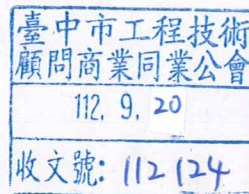 臺中市工程技術
顧問商業同業公會
112. 9. 20
收文號: 112124